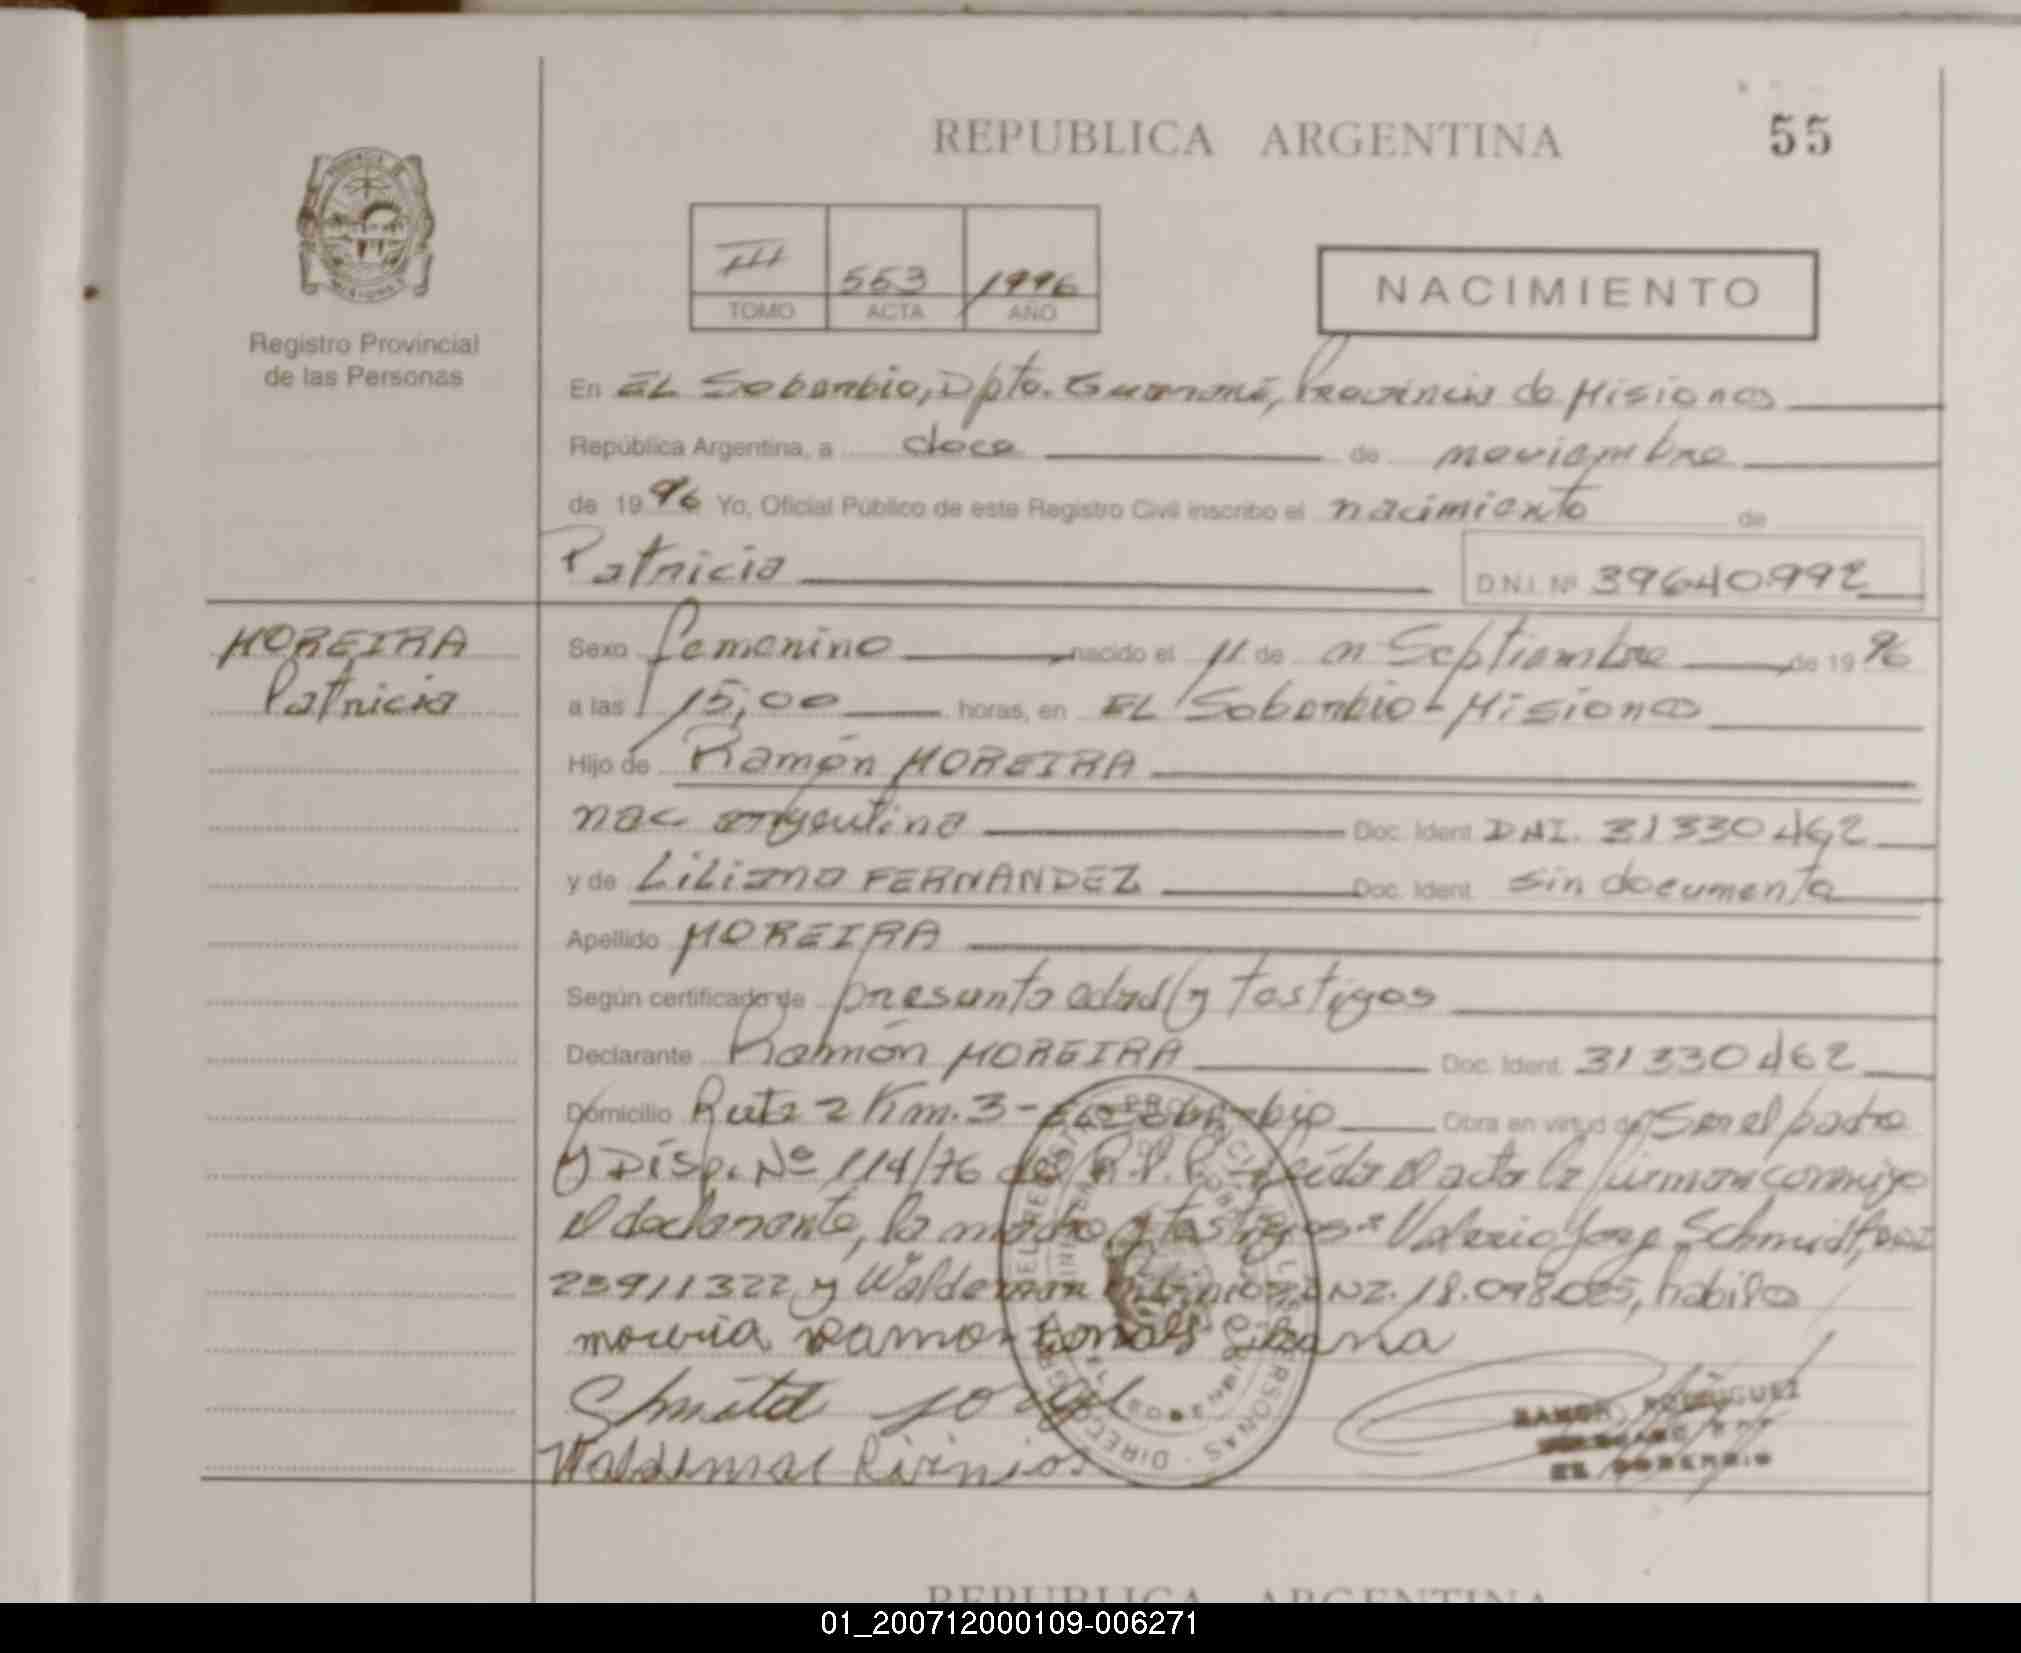 REPUBLICA ARGENTINA
55
Registro Provincial
de las Personas
III 553 1996
TOMO ACTA AÑO
NACIMIENTO
En EL Soberbio, Dpto. Guaraní, Provincia de Misiones
República Argentina, a doce de noviembre
de 1996 Yo, Oficial Público de este Registro Civil inscribo el nacimiento de
Patricia D.N.I. Nº 39640992
MOREIRA
Patricia
Sexo femenino nacido el 11 de Septiembre de 1996
a las 15,00 horas, en EL Soberbio - Misiones
Hijo de Ramón MOREIRA
nac argentina Doc. Ident. DNI. 31330462
y de Liliana FERNANDEZ Doc. Ident. sin documento
Apellido MOREIRA
Según certificado de presunta edad y testigos
Declarante Ramón MOREIRA Doc. Ident. 31330462
Domicilio Ruta 2 Km. 3 - El Soberbio Obra en virtud de Ser el padre
y Disp. Nº 114/76 del R.P.P. - Leída el acta la firman conmigo
el declarante, la madre y testigos: Valerio Jorge Schmidt, DNI
23911322 y Waldemar DNI. 18.098.085, hábiles
moreira Ramon
Shmitd jorge
Waldemar Rivinios
RAMON RODRIGUEZ
EL SOBERBIO
REPUBLICA ARGENTINA
01_200712000109-006271